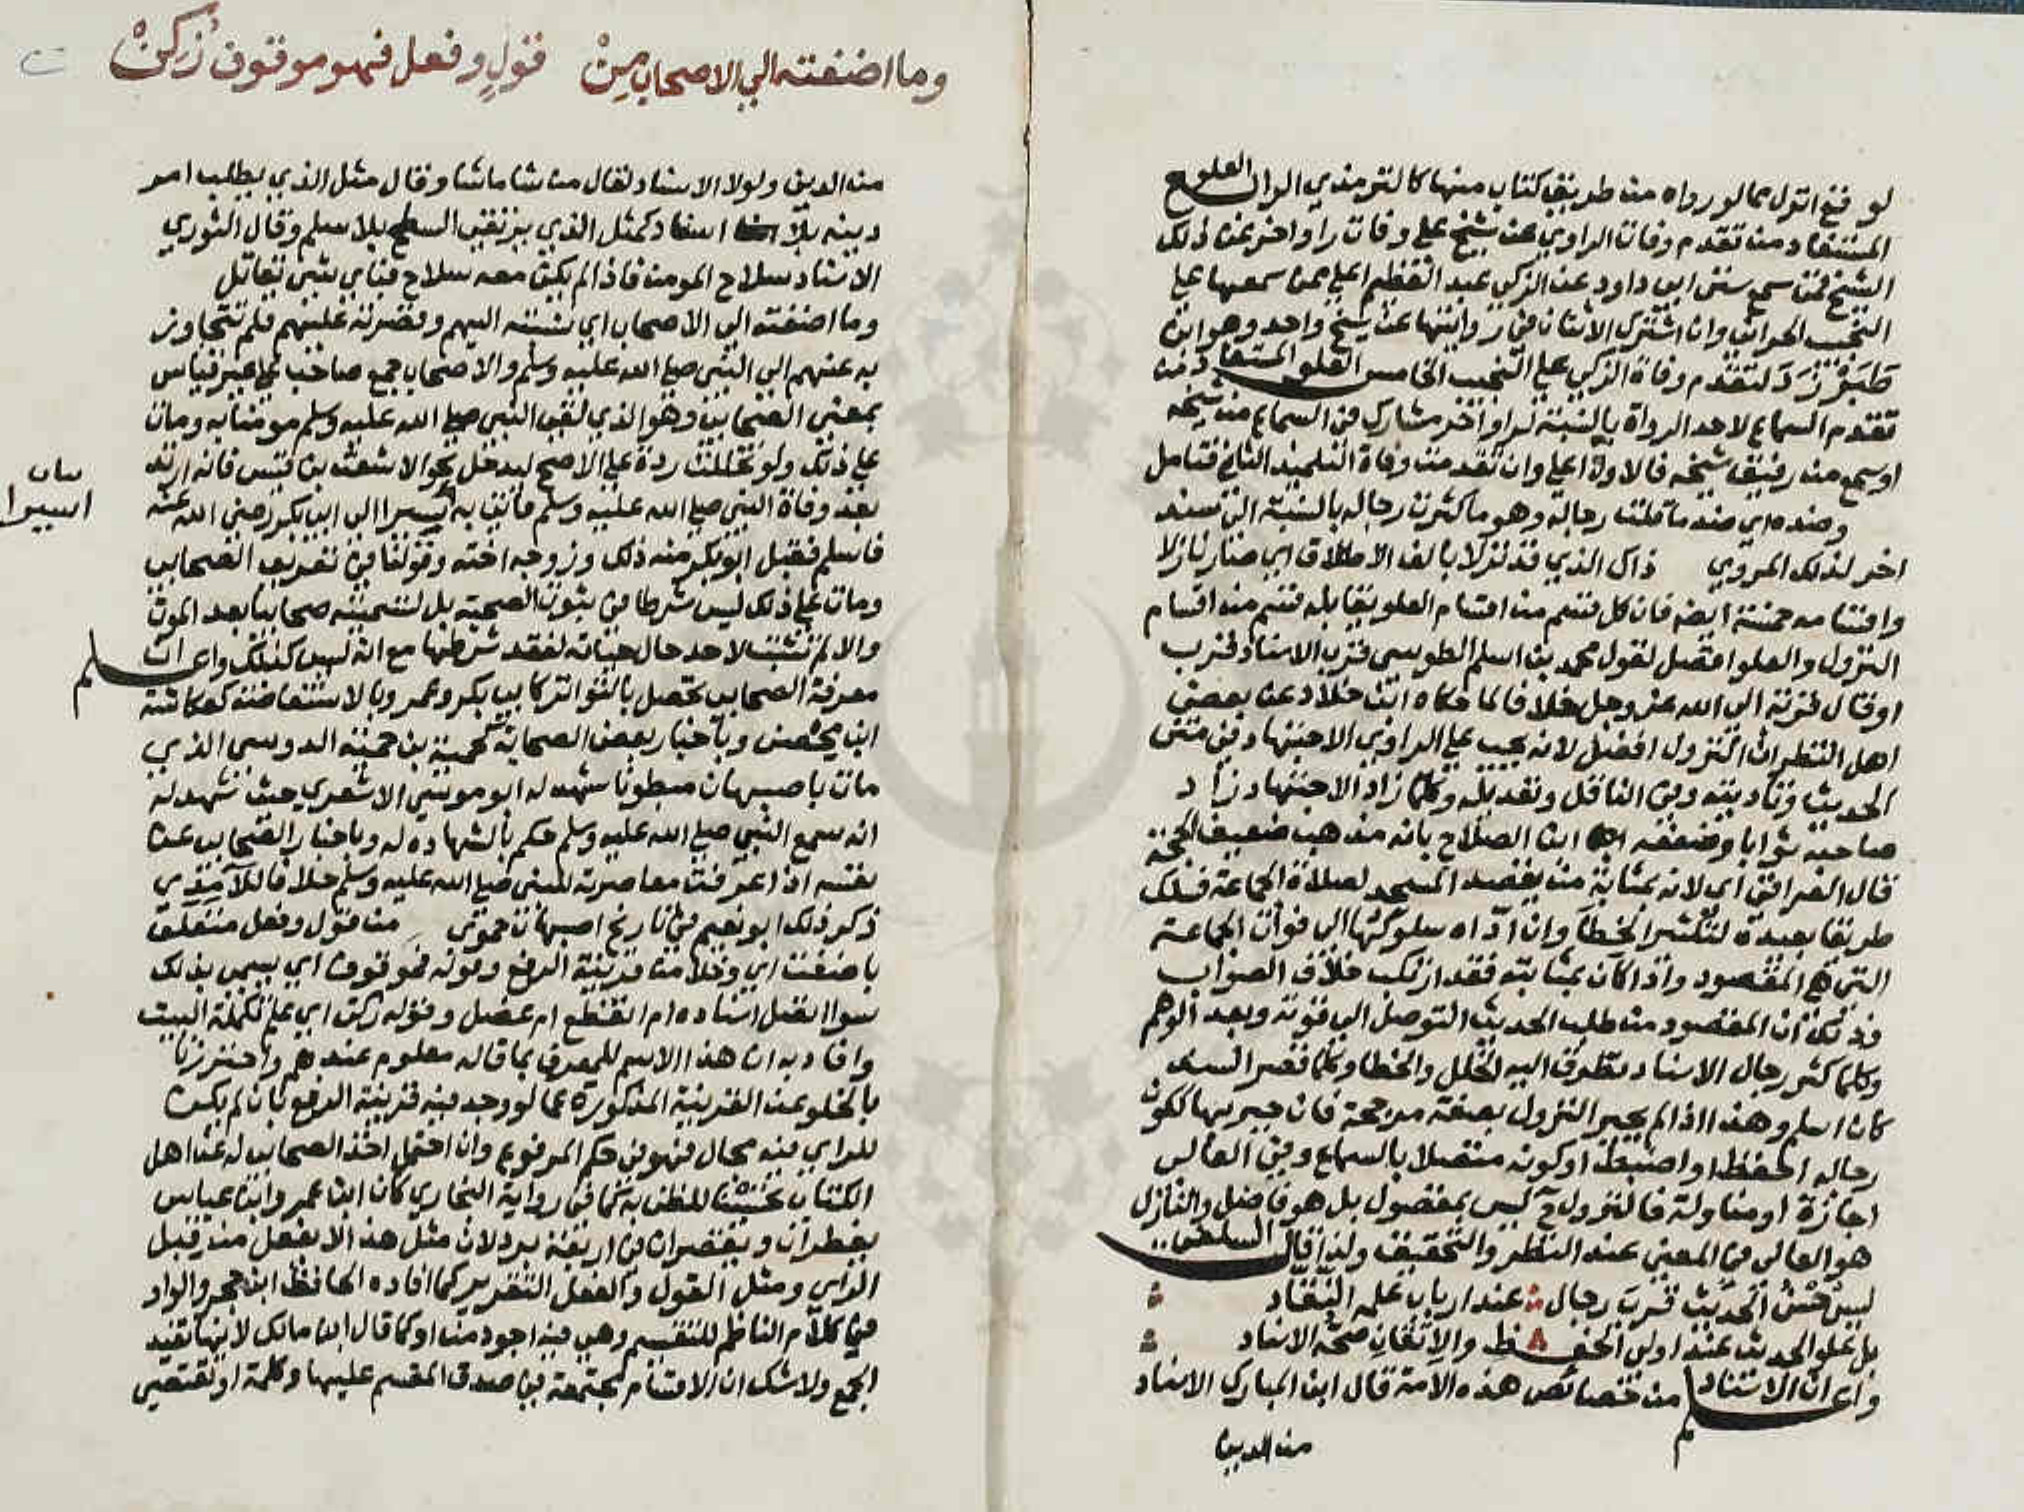 لو وقع انزل مما لو رواه من طريق كتاب منها كالترمذي الرابع العلو
المستفاد من تقدم وفات الراوي عن شيخ علي وفات راو اخر عن ذلك
الشيخ فمن سمع سنن ابي داود عن الزكي عبد العظيم اعلي ممن سمعها علي
النجيب الحراني وان اشترك الاثنان في روايتها عن شيخ واحد وهو ابن
طَبَرْزَدَ لتقدم وفاة الزكي علي النجيب الخامس العلو المستفاد من
تقدم السماع لاحد الرواة بالنسبة لراو اخر مشارك في السماع من شيخه
او سمع من رفيق شيخه فالاول اعلي وان تقدمت وفاة التلميذ الثاني فتامل
وضده اي ضد ما قلت رجاله وهو ما كثرت رجاله بالنسبة الي سند
اخر لذلك المروي ذاك الذي قد نزلا بالف الاطلاق اي صار نازلا
واقسامه خمسة ايضا فان كل قسم من اقسام العلو يقابله قسم من اقسام
النزول والعلو افضل لقول محمد بن اسلم الطوسي قرب الاسناد قرب
او قال قربة الي الله عز وجل خلافا لما حكاه ابن خلاد عن بعض
اهل النظر ان النزول افضل لانه يجب علي الراوي الاجتهاد في متن
الحديث وتاويله وفي الناقل وتعديله وكلما زاد الاجتهاد زاد
صاحبه ثوابا وضعفه ابن الصلاح بانه مذهب ضعيف الحجة
قال العراقي اي لانه بمثابة من يقصد المسجد لصلاة الجماعة فسلك
طريقا بعيدة لتكثير الخطا وان اداه سلوكها الي فوات الجماعة
التي هي المقصود واذا كان بمثابته فقد ارتكب خلاف الصواب
وذلك ان المقصود من طلب الحديث التوصل الي قوته وبعد الوهم
وكلما كثر رجال الاسناد تطرق اليه الخلل والخطا وكلما قصر السند
كان اسلم وهذا اذا لم يجبر النزول بصفة مرجحة فان جبر بها لكون
رجاله احفظ او اضبط او كونه متصلا بالسماع وفي العالي
اجازة او مناولة فالنزول ح ليس بمفضول بل هو فاضل والنازل
هو العالي في المعني عند النظر والتحقيق ولذا قال السلفي
ليس حُسْنُ الحديث قربَ رجال عند ارباب علمه النقاد
بل علو الحديث عند اولي الحفظ والاتقان صحة الاسناد
واعلم ان الاسناد من خصائص هذه الامة قال ابن المبارك الاسناد
من الدين
وما اضفته الي الاصحاب مِنْ قولٍ وفعل فهو موقوف زُكِنْ
من الدين ولولا الاسناد لقال من شا ما شا وقال مثل الذي يطلب امر
دينه بلا اسناد كمثل الذي يرتقي السطح بلا سلم وقال الثوري
الاسناد سلاح المومن فاذا لم يكن معه سلاح فباي شي يقاتل
وما اضفته الي الاصحاب اي نسبته اليهم وقصرته عليهم فلم تتجاوز
به عنهم الي النبي صلي الله عليه وسلم والاصحاب جمع صاحب علي غير قياس
بمعني الصحابي وهو الذي لقي النبي صلي الله عليه وسلم مومنا به ومات
علي ذلك ولو تخللت ردة علي الاصح ليدخل نحو الاشعث بن قيس فانه ارتد
بعد وفاة النبي صلي الله عليه وسلم فاتي به اسيرا الي ابي بكر رضي الله عنه
بيان
اسيرا
فاسلم فقبل ابو بكر منه ذلك وزوجه اخته وقولنا في تعريف الصحابي
ومات علي ذلك ليس شرطا في ثبوت الصحبة بل لتسميته صحابيا بعد الموت
والا لم تثبت لاحد حال حياته لفقد شرطها مع انه ليس كذلك واعلم ان
معرفة الصحابي تحصل بالتواتر كابي بكر وعمر وبالاستفاضة كعكاشة
ابن محصن وباخبار بعض الصحابة كحممة بن حممة الدوسي الذي
مات باصبهان مبطونا شهد له ابو موسي الاشعري حيث شهد له
انه سمع النبي صلي الله عليه وسلم حكم بالشهادة له وباخبار الصحابي عن
نفسه اذا عرفت معاصرته للنبي صلي الله عليه وسلم خلافا للآمدي
ذكر ذلك ابو نعيم في تاريخ اصبهان من قول وفعل متعلق
باضفت اي وخلا من قرينة الرفع وقوله فموقوف اي يسمي بذلك
سوا اتصل اسناده ام انقطع ام عضل وقوله زكن اي علم تكملة البيت
وافاد به ان هذا الاسم للمعرف بما قاله معلوم عندهم واحترزنا
بالخلو عن القرينة المذكورة عما لو وجد فيه قرينة الرفع بان لم يكن
للراي فيه مجال فهو في حكم المرفوع وان احتمل اخذ الصحابي له عن اهل
الكتاب تحسينا للظن به كما في رواية البخاري كان ابن عمر وابن عباس
يفطران ويقصران في اربعة برد لان مثل هذا لا يفعل من قبل
الراي ومثل القول والفعل التقرير كما افاده الحافظ ابن حجر والواو
في كلام الناظم للتقسيم وهي فيه اجود من او كما قال ابن مالك لانها تفيد
الجمع ولا شك ان الاقسام مجتمعة في صدق المقسم عليها وكلمة او تقتضي